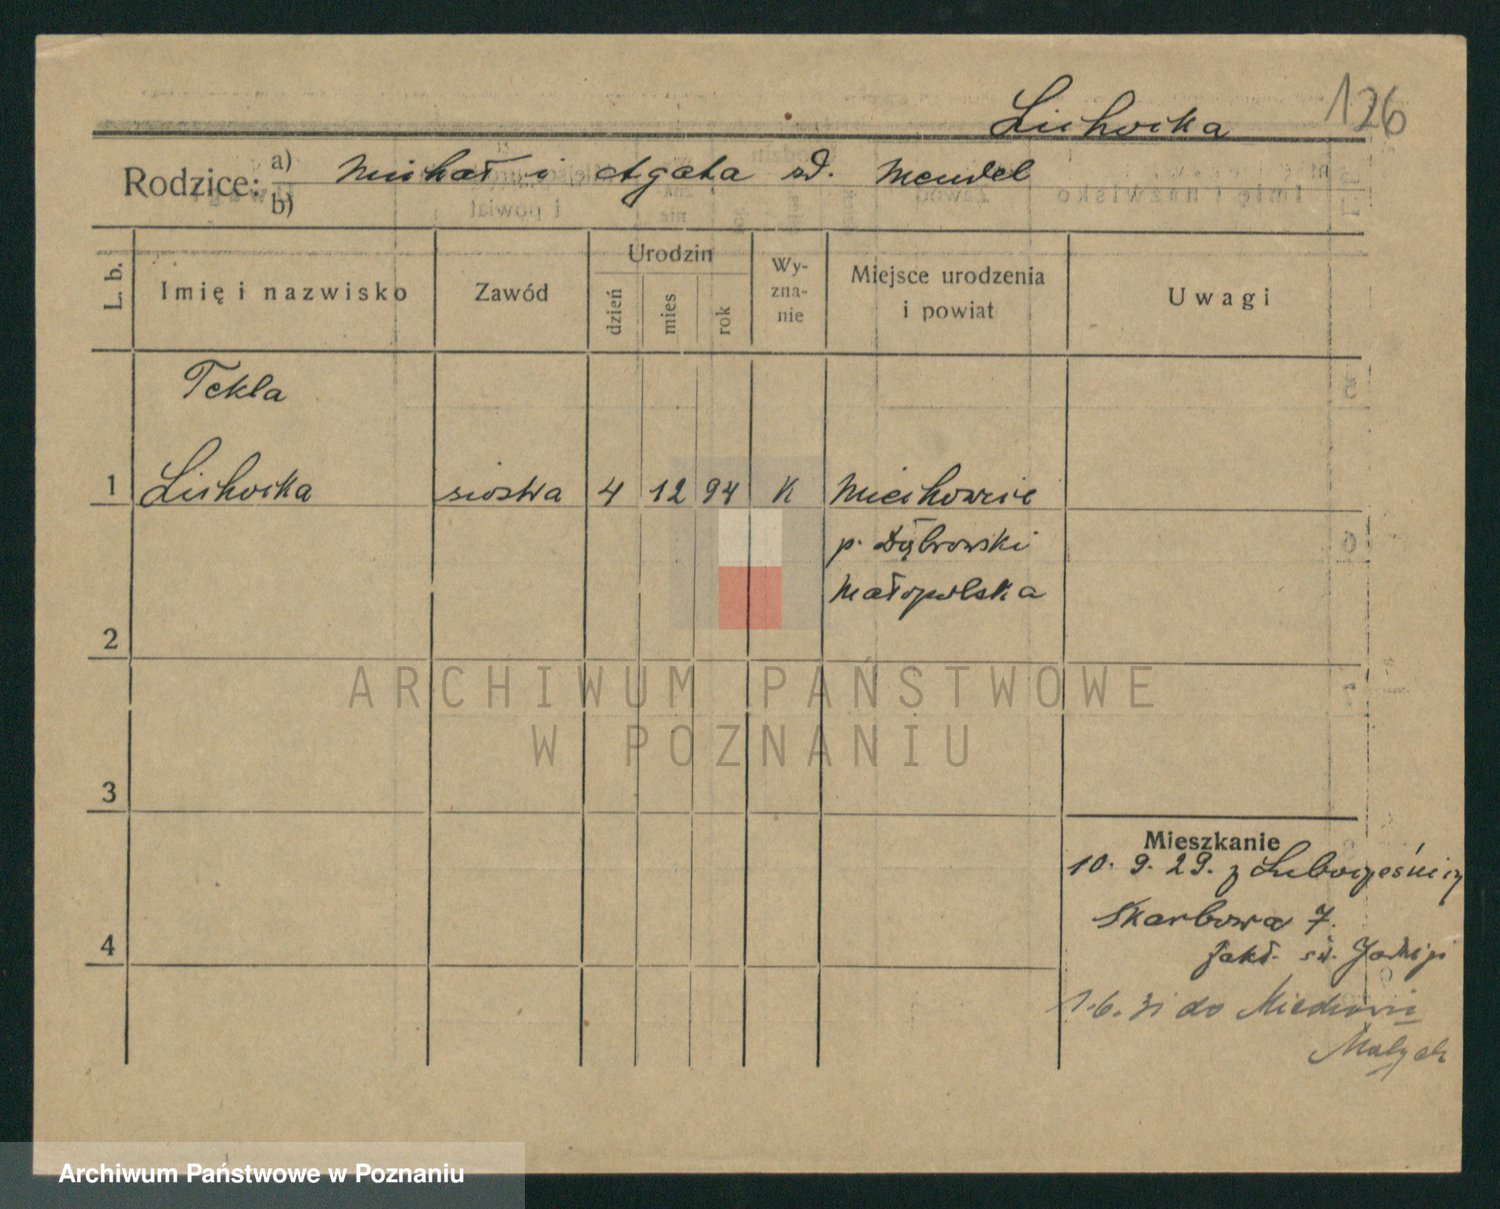 126
Lichocka
Rodzice: a) Michał i Agata zd. Mendel
b)
L. b.
Imię i nazwisko
Zawód
Urodzin
dzień
mies
rok
Wy-
zna-
nie
Miejsce urodzenia
i powiat
Uwagi
Tekla
1 Lichocka siostra 4 12 94 K Miechowcie
p. Dąbrowski
Małopolska
2
3
4
Mieszkanie
10. 9. 29. z
Skarbowa 7.
Zakł. św. Jadwigi
1.6.31 do
Małych
ARCHIWUM PAŃSTWOWE
W POZNANIU
Archiwum Państwowe w Poznaniu